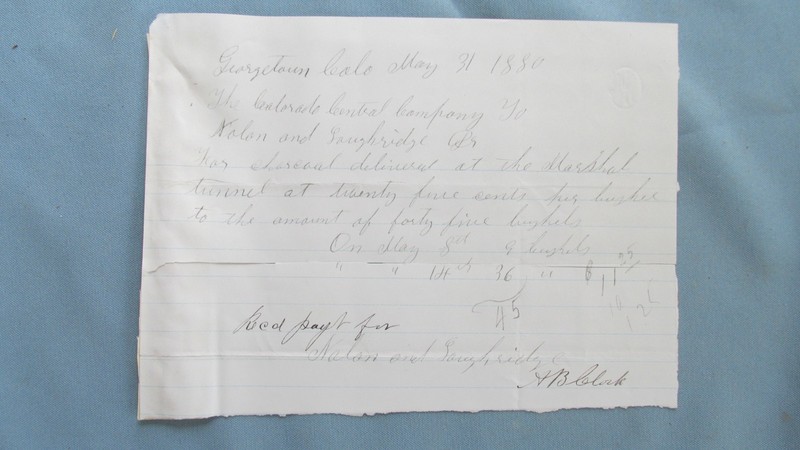 Georgetown Colo May 31 1880
The Colorado Central Company To
Nolan and Loughridge Dr
For charcoal delivered at the Marshal
tunnel at twenty five cents per bushel
to the amount of forty five bushels
On May 8th 9 bushels
" " 14th 36 " $ 11 25
45
Recd payt for
Nolan and Loughridge
A B Clark